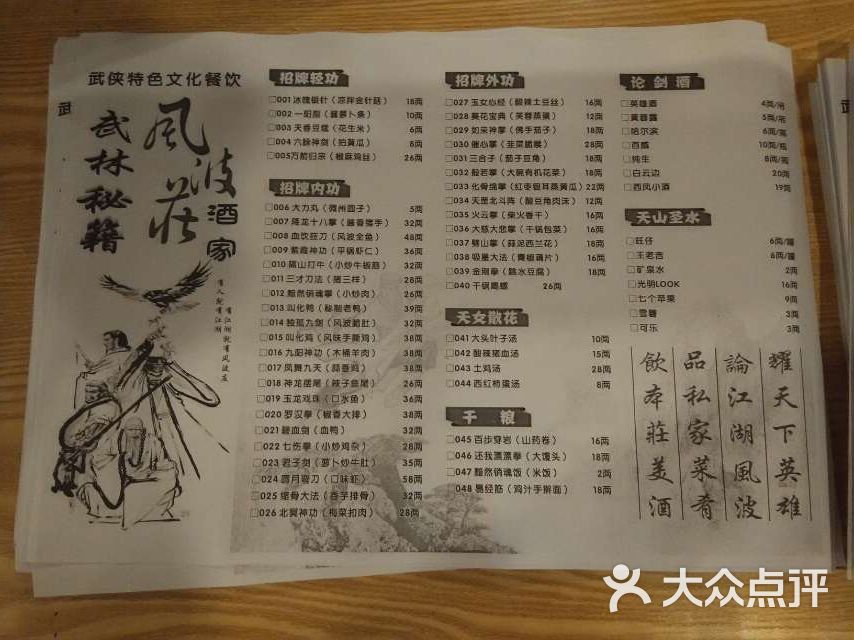 武侠特色文化餐饮
武
武林秘籍
風波莊
酒家
有人就有江湖
有江湖就有风波庄
招牌轻功
□001 冰魄银针（凉拌金针菇） 18两
□002 一阳指（酱萝卜条） 10两
□003 天香豆蔻（花生米） 6两
□004 六脉神剑（拍黄瓜） 8两
□005万箭归宗（椒麻鸡丝） 26两
招牌内功
□006 大力丸（徽州圆子） 5两
□007 降龙十八掌（酱香猪手） 32两
□008 血饮狂刀（风波全鱼） 48两
□009 紫霞神功（平锅虾仁） 36两
□010 隔山打牛（小炒牛板筋） 32两
□011 三才刀法（猪三样） 28两
□012 黯然销魂掌（小炒肉） 26两
□013 叫化鸭（秘制老鸭） 39两
□014 独孤九剑（风波脆肚） 32两
□015 叫化鸡（风味手撕鸡） 38两
□016 九阳神功（木桶羊肉） 38两
□017 凤舞九天（蒜香鸡） 38两
□018 神龙摆尾（辣子鱼尾） 26两
□019 玉龙戏珠（口水鱼） 36两
□020 罗汉拳（椒香大排） 38两
□021 碧血剑（血鸭） 32两
□022 七伤拳（小炒鸡杂） 28两
□023 君子剑（萝卜炒牛肚） 35两
□024 圆月弯刀（口味虾） 58两
□025 缩骨大法（香芋排骨） 32两
□026 北冥神功（梅菜扣肉） 28两
招牌外功
□027 玉女心经（酸辣土豆丝） 16两
□028 葵花宝典（芙蓉蒸蛋） 12两
□029 如来神掌（佛手茄子） 18两
□030 催心掌（韭菜脆膜） 28两
□031 三合子（茄子豆角） 18两
□032 般若掌（大碗有机花菜） 18两
□033 化骨绵掌（红枣银耳蒸黄瓜） 22两
□034 天罡北斗阵（酸豆角肉沫） 12两
□035 火云掌（柴火香干） 16两
□036 大慈大悲掌（干锅包菜） 18两
□037 劈山掌（蒜泥西兰花） 18两
□038 吸星大法（青椒藕片） 16两
□039 金刚拳（盐水豆腐） 18两
□040 干锅嗍螺 26两
天女散花
□041 大头叶子汤 10两
□042 酸辣猪血汤 15两
□043 土鸡汤 28两
□044 西红柿蛋汤 8两
干粮
□045 百步穿岩（山药卷） 16两
□046 还我漂漂拳（大馒头） 18两
□047 黯然销魂饭（米饭） 2两
□048 易经筋（鸡汁手擀面） 18两
论剑酒
□英雄酒 4两/吊
□黄蓉露 5两/吊
□哈尔滨 6两/瓶
□百威 10两/瓶
□纯生 8两/瓶
□白云边 20两
□西凤小酒 19两
天山圣水
□旺仔 6两/罐
□王老吉 6两/罐
□矿泉水 2两
□光明LOOK 16两
□七个苹果 9两
□雪碧 3两
□可乐 3两
耀天下英雄
論江湖風波
品私家菜肴
飲本莊美酒
大众点评